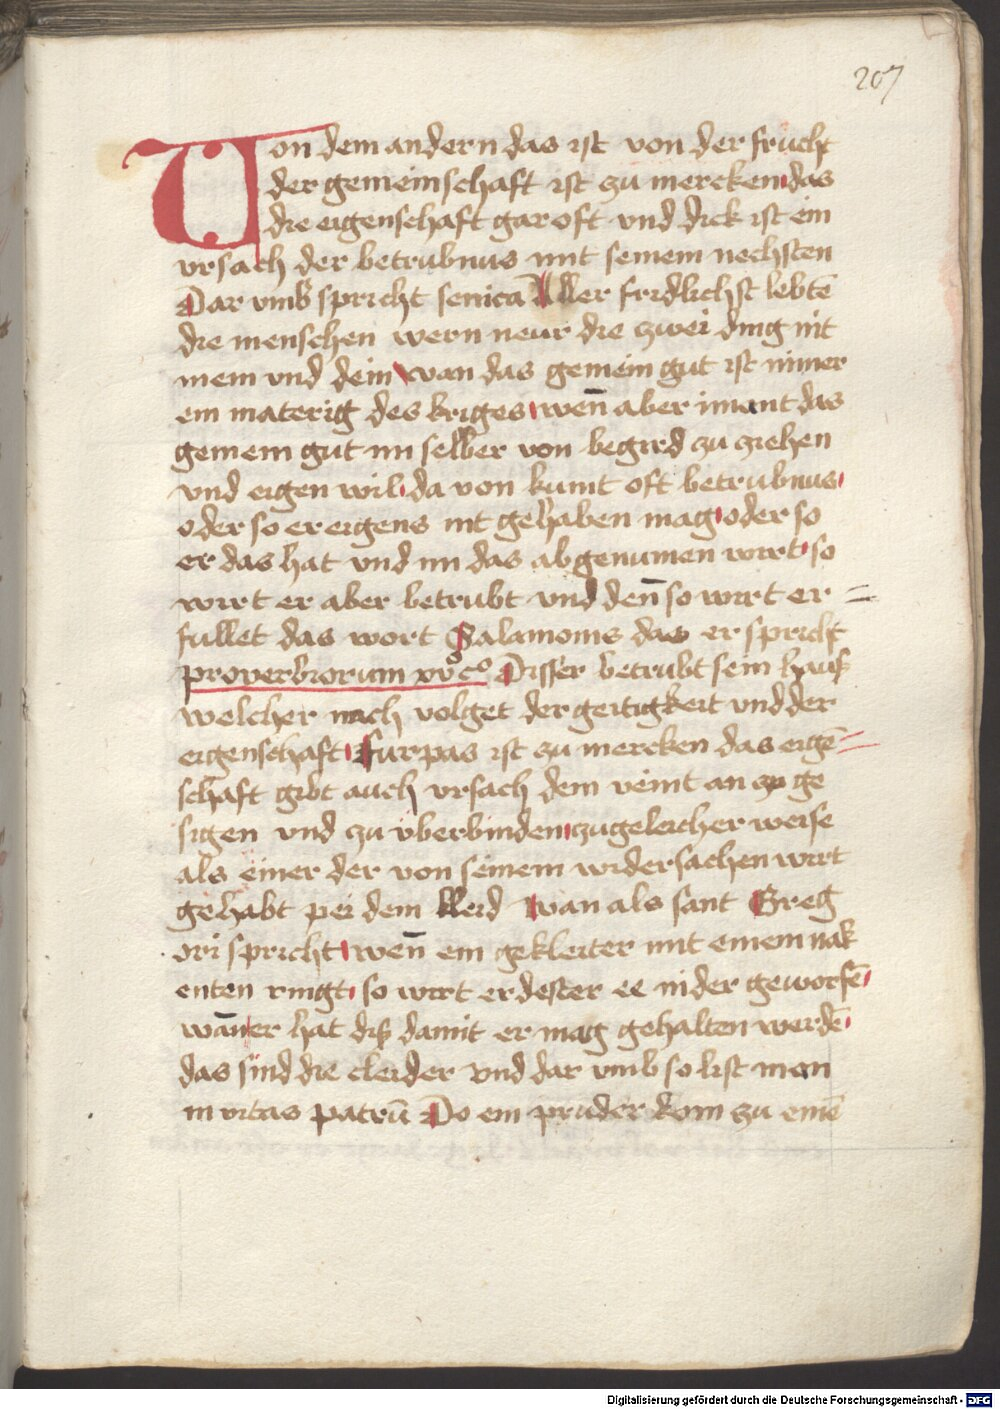 207
Von dem andern das ist von der frucht
der gemeinschaft ist zu mercken das
die eigenschaft gar oft vnd dick ist ein
vrsach der betrubnus mit seinem nechsten
Dar vmb spricht senica Aller fridlichst lebtē
die menschen wern neur die zwei ding nit
mein vnd dein wan das gemein gut ist nimer
ein materig des kriges wen̄ aber imant das
gemein gut im selber von begird zu ziehen
vnd eigen wil da von kumt oft betrubnus
oder so er eigens nit gehaben mag oder so
er das hat vnd im das abgenumen wirt so
wirt er aber betrubt vnd den̄ so wirt er =
fullet das wort Salamonis das er spricht
proverbiorum xvᵒ cᵒ Disser betrubt sein haus
welcher nach volget der geitigkeit vnd der
eigenschaft furpas ist zu mercken das eigē=
schaft gibt auch vrsach dem veint an zu ge
sigen vnd zu vberbinden zugeleicher weise
als einer der von seinem widersachen wirt
gehabt pei dem kleid wan als sant Greg
ori spricht wen̄ ein gekleiter mit einem nak
enten ringt so wirt er dester ee nider geworfē
wan̄ er hat dis damit er mag gehalten werdē
das sind die cleider vnd dar vmb so list man
in vitas patrū Do ein pruder kom zu einē
Digitalisierung gefördert durch die Deutsche Forschungsgemeinschaft - DFG